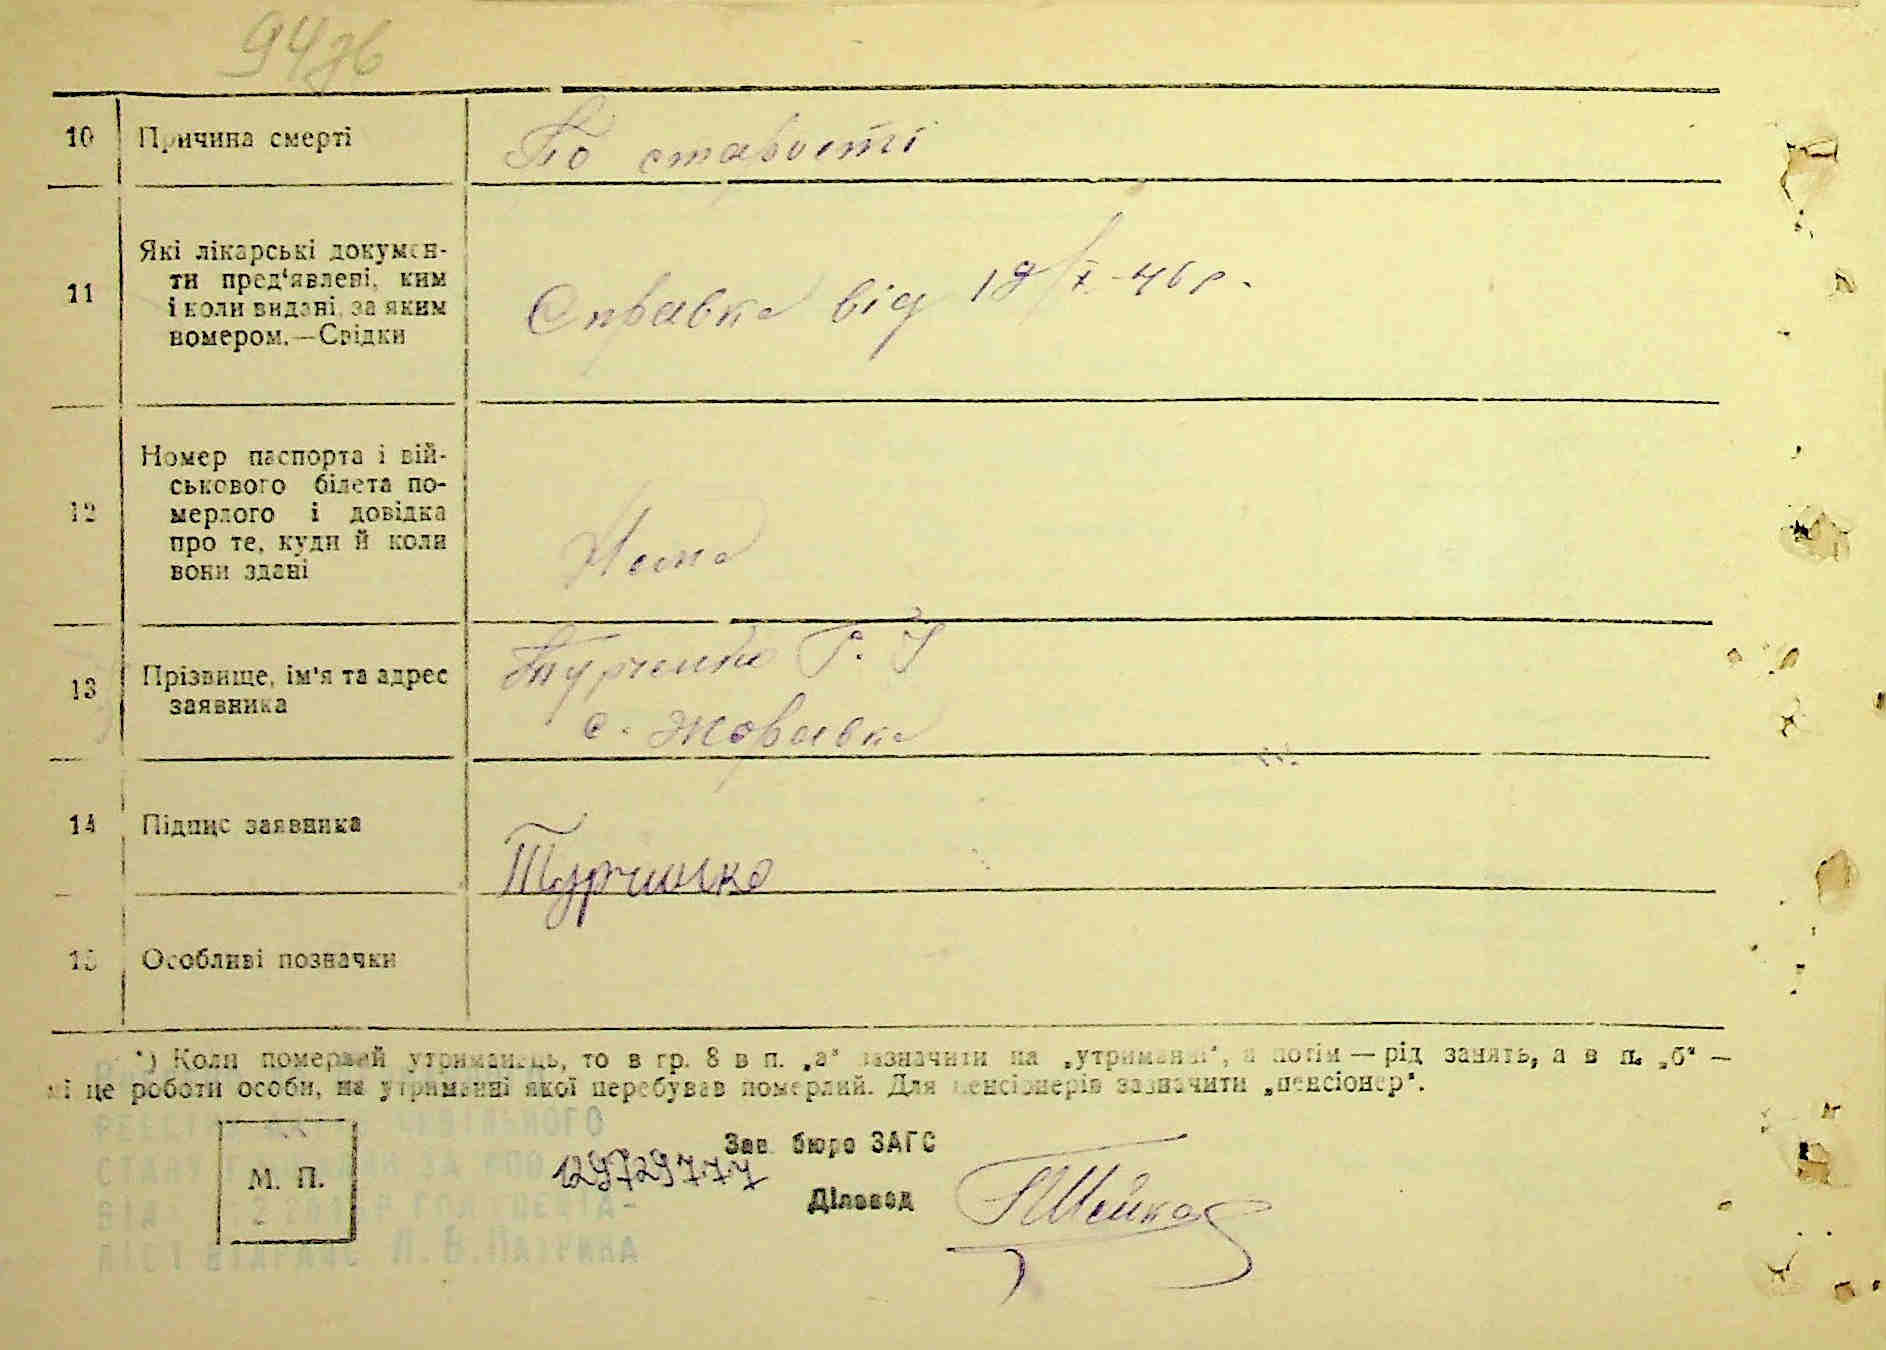 94зв
10 Причина смерті По старості
11 Які лікарські докумен-
ти пред‘явлені, ким
і коли видані, за яким
номером.—Свідки
Справка від 19/X-46 р.
12 Номер паспорта і вій-
ськового білета по-
мерлого і довідка
про те, куди й коли
вони здані
Нема
13 Прізвище, ім'я та адрес
заявника
Турченко Г. І
с. Жоравка
14 Підпис заявника
Турченко
15 Особливі позначки
*) Коли померлий утриманець, то в гр. 8 в п. „а“ зазначити на „утриманні“, а потім — рід занять, а в п. „б“ —
місце роботи особи, на утриманні якої перебував померлий. Для пенсіонерів зазначити „пенсіонер“.
РЕЄСТР ЦИВІЛЬНОГО
СТАНУ ГРОМАДЯН ЗА
ВІД ГОЛ СПЕЦІА-
ЛІСТ ВДРАЦС Л. В.
М. П.
Зав. бюро ЗАГС
129729777
Діловод